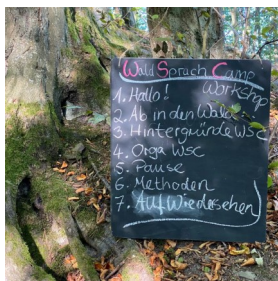 Wald Spruch Camp
Workshop
1. Hallo!
2. Ab in den Wald
3. Hintergründe WSC
4. Orga WSC
5. Pause
6. Methoden
7. Auf Wiedersehen